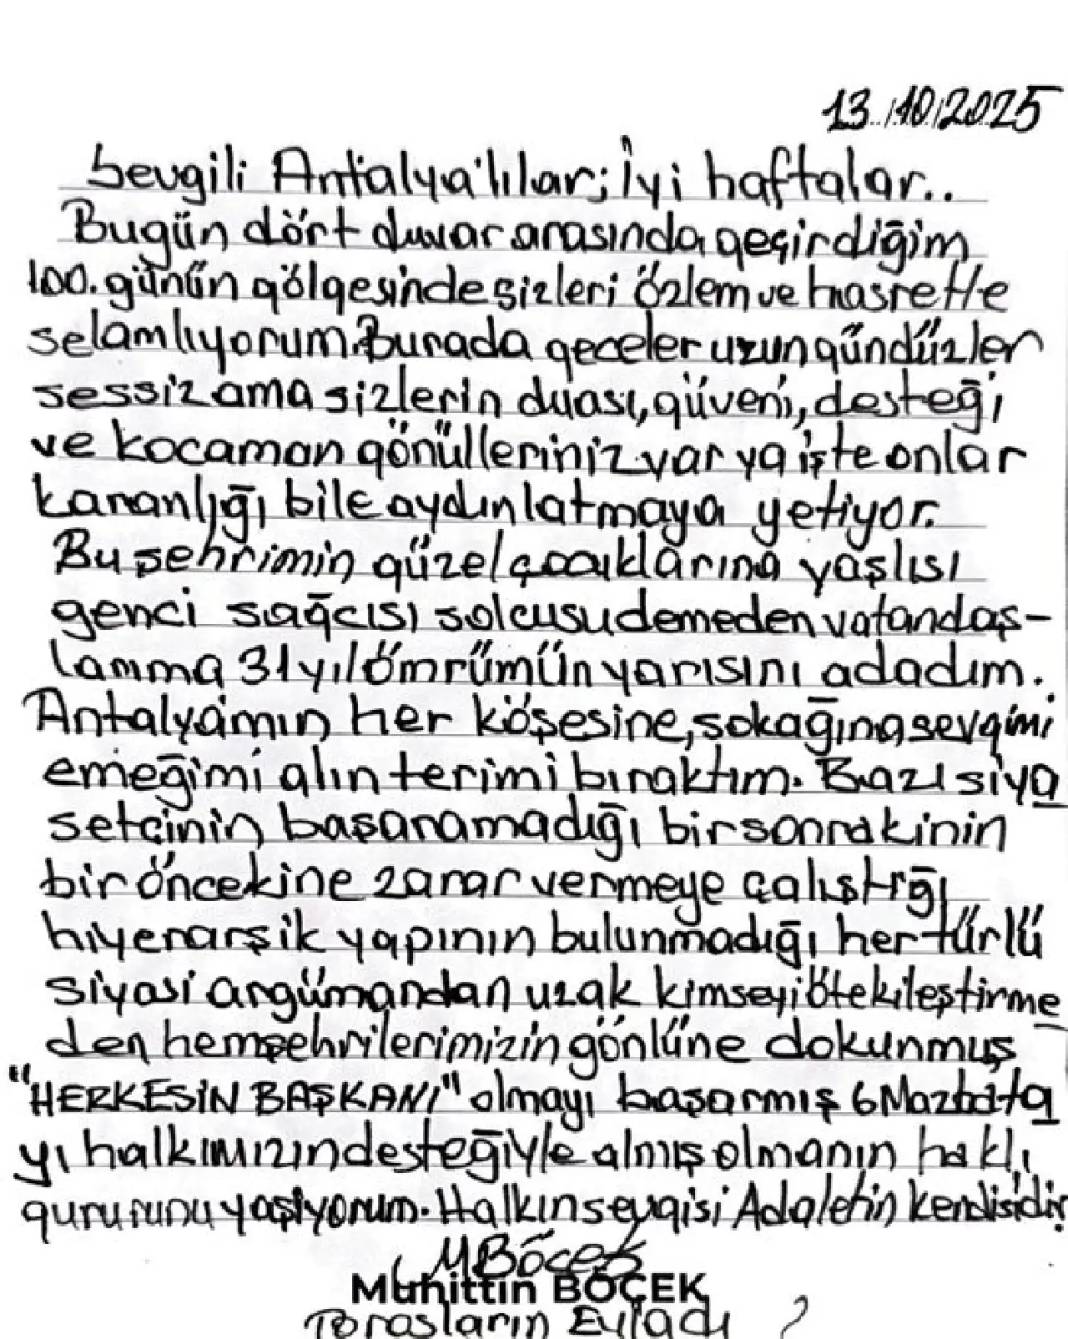 13.10.2025
Sevgili Antalya'lılar; İyi haftalar..
Bugün dört duvar arasında geçirdiğim
100. günün gölgesinde sizleri özlem ve hasretle
selamlıyorum. Burada geceler uzun gündüzler
sessiz ama sizlerin duası, güveni, desteği
ve kocaman gönülleriniz var ya işte onlar
karanlığı bile aydınlatmaya yetiyor.
Bu şehrimin güzel çocuklarına yaşlısı
genci sağcısı solcusu demeden vatandaş-
larıma 31 yıl ömrümün yarısını adadım.
Antalyamın her köşesine, sokağına sevgimi
emeğimi alın terimi bıraktım. Bazı siya
setçinin başaramadığı bir sonrakinin
bir öncekine zarar vermeye çalıştığı
hiyerarşik yapının bulunmadığı her türlü
siyasi argümandan uzak kimseyi ötekileştirme
den hemşehrilerimizin gönlüne dokunmuş
"HERKESİN BAŞKANI" olmayı başarmış 6 Mazbata
yı halkımızın desteğiyle almış olmanın haklı
gururunu yaşıyorum. Halkın sevgisi Adaletin kendisidir.
MBöcek
Muhittin BÖCEK
Torosların Evladı